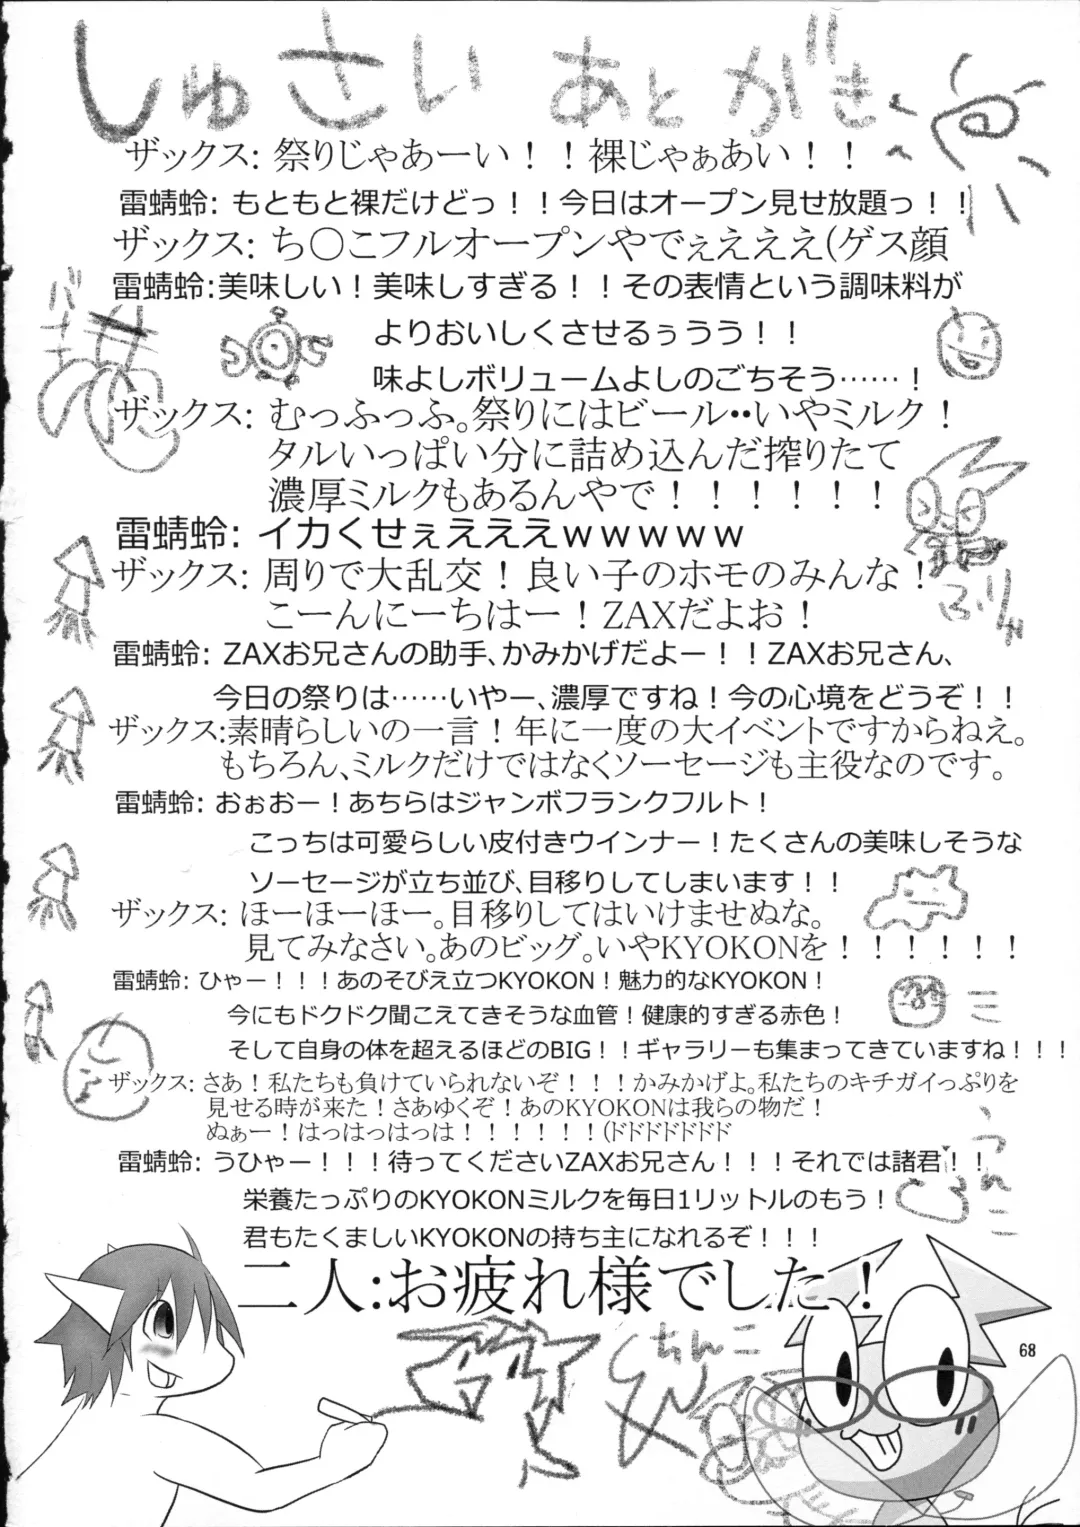 しゅさい あとがき
ザックス: 祭りじゃあーい！！裸じゃぁあい！！
雷蜻蛉: もともと裸だけどっ！！今日はオープン見せ放題っ！！
ザックス: ち〇こフルオープンやでぇえええ(ゲス顔
雷蜻蛉:美味しい！美味しすぎる！！その表情という調味料が
よりおいしくさせるぅうう！！
味よしボリュームよしのごちそう……！
ザックス: むっふっふ。祭りにはビール・・いやミルク！
タルいっぱい分に詰め込んだ搾りたて
濃厚ミルクもあるんやで！！！！！！
雷蜻蛉: イカくせぇえええｗｗｗｗｗ
ザックス: 周りで大乱交！良い子のホモのみんな！
こーんにーちはー！ZAXだよお！
雷蜻蛉: ZAXお兄さんの助手、かみかげだよー！！ZAXお兄さん、
今日の祭りは……いやー、濃厚ですね！今の心境をどうぞ！！
ザックス:素晴らしいの一言！年に一度の大イベントですからねえ。
もちろん、ミルクだけではなくソーセージも主役なのです。
雷蜻蛉: おぉおー！あちらはジャンボフランクフルト！
こっちは可愛らしい皮付きウインナー！たくさんの美味しそうな
ソーセージが立ち並び、目移りしてしまいます！！
ザックス: ほーほーほー。目移りしてはいけませぬな。
見てみなさい。あのビッグ。いやKYOKONを！！！！！！
雷蜻蛉: ひゃー！！！あのそびえ立つKYOKON！魅力的なKYOKON！
今にもドクドク聞こえてきそうな血管！健康的すぎる赤色！
そして自身の体を超えるほどのBIG！！ギャラリーも集まってきていますね！！！
ザックス: さあ！私たちも負けていられないぞ！！！かみかげよ。私たちのキチガイっぷりを
見せる時が来た！さあゆくぞ！あのKYOKONは我らの物だ！
ぬぁー！はっはっはっは！！！！！！(ドドドドドドド
雷蜻蛉: うひゃー！！！待ってくださいZAXお兄さん！！！それでは諸君！！
栄養たっぷりのKYOKONミルクを毎日1リットルのもう！
君もたくましいKYOKONの持ち主になれるぞ！！！
うんこ
二人:お疲れ様でした！
ちんこ
68